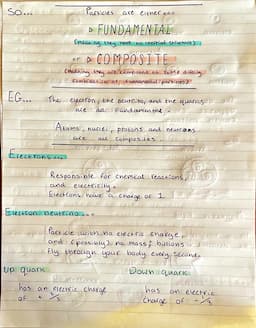 SO...
Particles are either...
▷ FUNDAMENTAL
(meaning they have no internal structure)
or ▷ COMPOSITE
(meaning they are
EG...
The electron, the neutrino, and the quarks
are all fundamental.
Atoms, nuclei, protons and neutrons
are all composites.
Electrons...
Responsible for chemical reactions
and electricity.
Electrons have a charge of 1
Electron-neutrino...
Particle with no electric charge,
and (possibly) no mass; billions
fly through your body every second.
Up quark
has an electric charge
of + ⅔
Down quark
has an electric
charge of -⅓